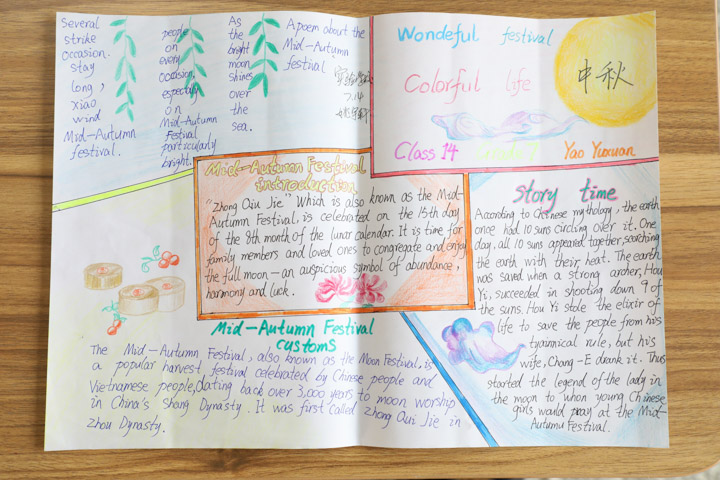 Wondeful festival
Colorful life
中秋
Class 14 Grade 7 Yao Yuxuan
A poem about the
Mid-Autumn
festival
7.14
As
the
bright
moon
shines
over
the
sea.
people
on
every
occasion,
especially
on
Mid-Autumn
Festival
particularly
bright.
Several
strike
occasion.
stay
long,
xiao
wind
Mid-Autumn
festival.
Mid-Autumn Festival
introduction
"Zhong Qiu Jie" Which is also known as the Mid-
Autumn Festival, is celebrated on the 15th day
of the 8th month of the lunar calendar. It is time for
family members and loved ones to congregate and enjoy
the full moon—an auspicious symbol of abundance,
harmony and luck.
Story time
According to Chinese mythology, the earth
once had 10 suns circling over it. One
day, all 10 suns appeared together, scorching
the earth with their heat. The earth
was saved when a strong archer, Hou
Yi, succeeded in shooting down 9 of
the suns. Hou Yi stole the elixir of
life to save the people from his
tyannical rule, but his
wife, Chang-E drank it. Thus
started the legend of the lady in
the moon to whon young Chinese
girls would pray at the Mid-
Autumu Festival.
Mid-Autumn Festival
customs
The Mid-Autumn Festival, also known as the Moon Festival, is
a popular harvest festival celebrated by Chinese people and
Vietnamese people, dating back over 3,000 years to moon worship
in China's Shang Dynasty. It was first called Zhong Qui Jie in
Zhou Dynasty.